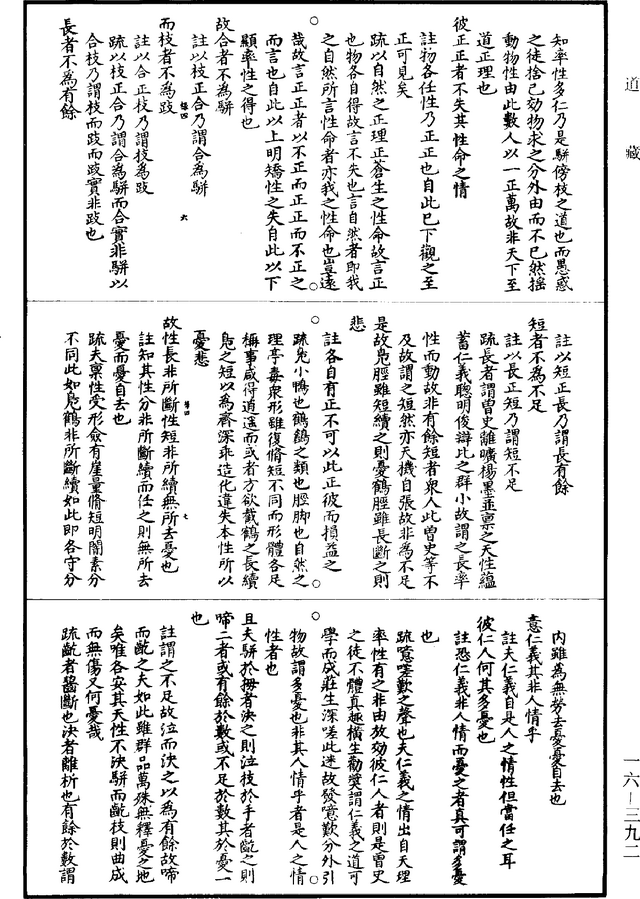 道藏
知率性多仁乃是駢傍枝之道也而愚惑
之徒捨己効物求之分外由而不已然搖
動物性由此數人以一正萬故非天下至
道正理也
彼正正者不失其性命之情
註物各任性乃正正也自此已下觀之至
正可見矣
疏以自然之正理正蒼生之性命故言正
也物各自得故言不失也言自然者即我
之自然所言性命者亦我之性命也豈遠
哉故言正正者以不正而正正而不正之
而言也自此以上明矯性之失自此以下
顯率性之得也
故合者不為駢
註以枝正合乃謂合為駢
而枝者不為跂
註以合正枝乃謂枝為跂
疏以枝正合乃謂合為駢而合實非駢以
合枝乃謂枝而跂而跂實非跂也
長者不為有餘
註以短正長乃謂長有餘
短者不為不足
註以長正短乃謂短不足
疏長者謂曾史離曠楊墨並稟之天性蘊
蓄仁義聰明俊辯比之群小故謂之長率
性而動故非有餘短者衆人比曾史等不
及故謂之短然亦天機自張故非為不足
是故鳧脛雖短續之則憂鶴脛雖長斷之則
悲
註各自有正不可以此正彼而損益之
疏鳧小鴨也鶴鵠之類也脛脚也自然之
理亭毒衆形雖復脩短不同而形體各足
稱事咸得逍遙而或者方欲截鶴之長續
鳧之短以為齊深乖造化違失本性所以
憂悲
故性長非所斷性短非所續無所去憂也
註知其性分非所斷續而任之則無所去
憂而憂自去也
疏夫稟性受形僉有崖量脩短明闇素分
不同此如鳧鶴非所斷續如此即各守分
內雖為無勞去憂憂自去也
意仁義其非人情乎
註夫仁義自是人之情性但當任之耳
彼仁人何其多憂也
註恐仁義非人情而憂之者真可謂多憂
也
疏噫嗟歎之聲也夫仁義之情出自天理
率性有之非由放効彼仁人者則是曾史
之徒不體真趣橫生勸奬謂仁義之道可
學而成莊生深嗟此迷故發噫歎分外引
物故謂多憂也非其人情乎者是人之情
性者也
且夫駢於拇者決之則泣枝於手者齕之則
啼二者或有餘於數或不足於數其於憂一
也
註謂之不足故泣而決之以為有餘故啼
而齕之夫如此雖群品萬殊無釋憂之地
矣唯各安其天性不決駢而齕枝則曲成
而無傷又何憂哉
疏齕者齧斷也決者離析也有餘於數謂
一六—三九二